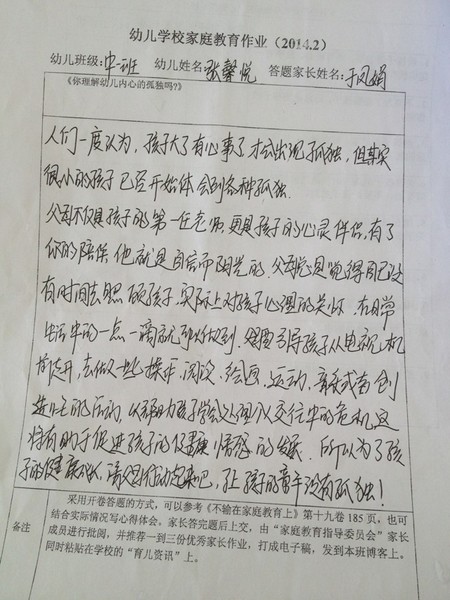 幼儿学校家庭教育作业（2014.2）
幼儿班级：中一班 幼儿姓名：张馨悦 答题家长姓名：于凤娟
《你理解幼儿内心的孤独吗？》
人们一度认为，孩子大了有心事了才会出现孤独，但其实
很小的孩子已经开始体会到各种孤独.
父母不仅是孩子的第一任老师，更是孩子的心灵伴侣，有了
你的陪伴他就是自信而阳光的.父母总是觉得自己没
有时间去照顾孩子.实际上对孩子心理的关怀.在日常
生活中的一点一滴就可以做到.只要引导孩子从电视机
前走开，去做一些操作、阅读、绘画、运动、音乐或者创
造性的活动，以帮助孩子学会处理人际交往中的危机，这
将有助于促进孩子的健康情感的发展.所以为了孩
子的健康成长，请父母行动起来吧，让孩子的童年没有孤独！
备注
采用开卷答题的方式，可以参考《不输在家庭教育上》第十九卷 185 页，也可
结合实际情况写心得体会。家长答完题后上交，由“家庭教育指导委员会”家长
成员进行批阅，并推荐一到三份优秀家长作业，打成电子稿，发到本班博客上。
同时粘贴在学校的“育儿资讯”上。